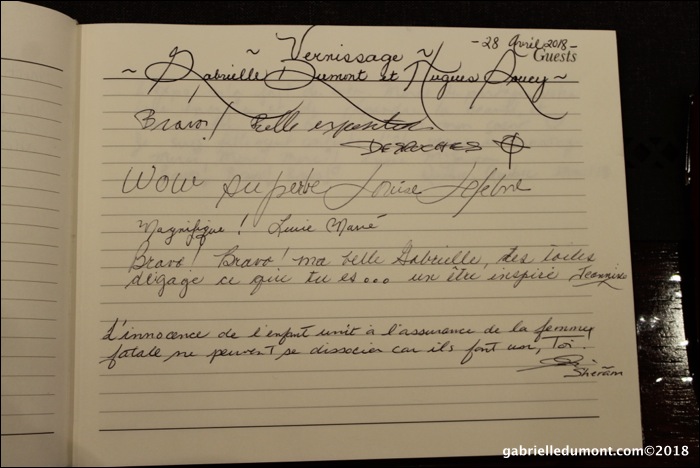 - 28 Avril 2018 -
Guests
~ Vernissage ~
~ Gabrielle Dumont et Hugues Soucy ~
Bravo! Belle exposition
DESROCHES
Wow superbe Louise Lefebvre
Magnifique! Lucie Marié
Bravo! Bravo! ma belle Gabrielle, tes toiles
dégage ce que tu es... un être inspiré Jeannine
L'innocence de l'enfant unit à l'assurance de la femme
fatale ne peuvent se dissocier car ils font un, Toi.
Sheräm
gabrielledumont.com©2018